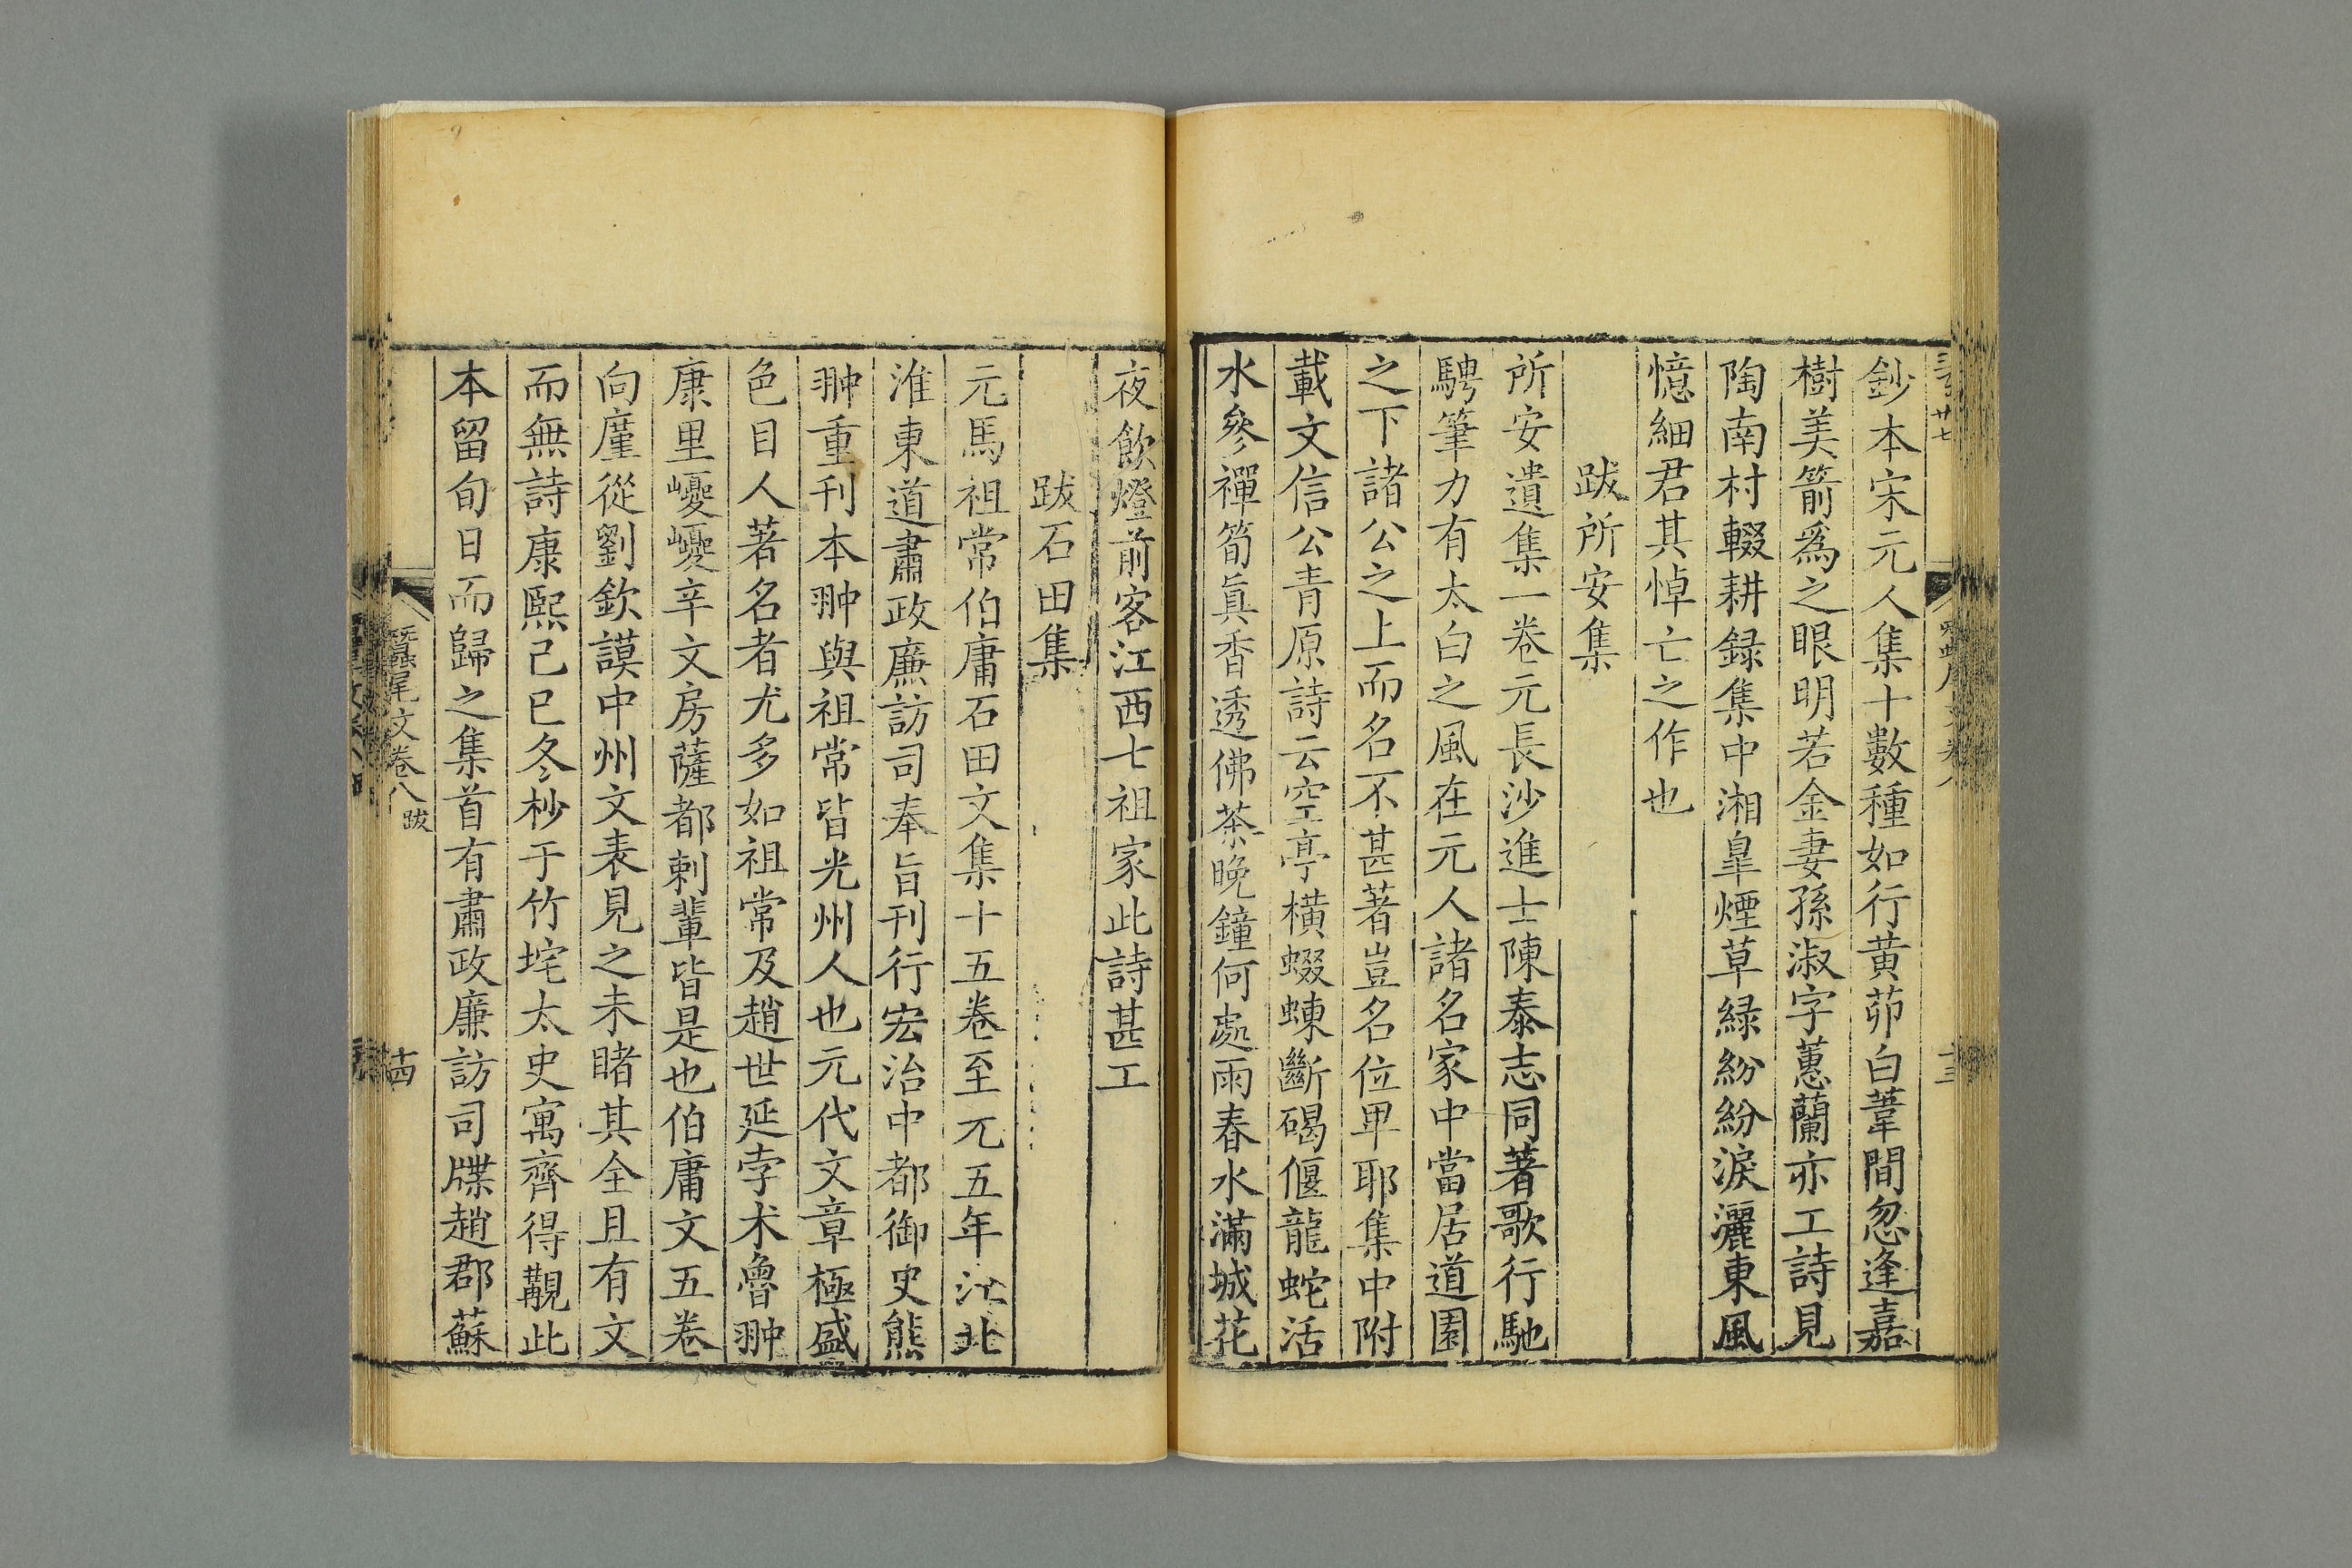 鈔本宋元人集十數種如行黃茆白葦間忽逢嘉
樹美箭爲之眼明若金妻孫淑字蕙蘭亦工詩見
陶南村輟耕録集中湘皐煙草緑紛紛淚灑東風
憶細君其悼亡之作也
跋所安集
所安遺集一卷元長沙進士陳泰志同著歌行馳
騁筆力有太白之風在元人諸名家中當居道園
之下諸公之上而名不甚著豈名位卑耶集中附
載文信公青原詩云空亭橫蝃蝀斷碣偃龍蛇活
水參禪筍眞香透佛茶晚鐘何處雨春水滿城花
夜飲燈前客江西七祖家此詩甚工
跋石田集
元馬祖常伯庸石田文集十五卷至元五年江北
淮東道肅政廉訪司奉旨刊行宏治中都御史熊
翀重刊本翀與祖常皆光州人也元代文章極盛
色目人著名者尤多如祖常及趙世延孛术魯翀
康里巙巙辛文房薩都剌輩皆是也伯庸文五卷
向廑從劉欽謨中州文表見之未睹其全且有文
而無詩康熙己巳冬杪于竹垞太史寓齊得覩此
本留旬日而歸之集首有肅政廉訪司牒趙郡蘇
蠶尾文卷八 跋
十四